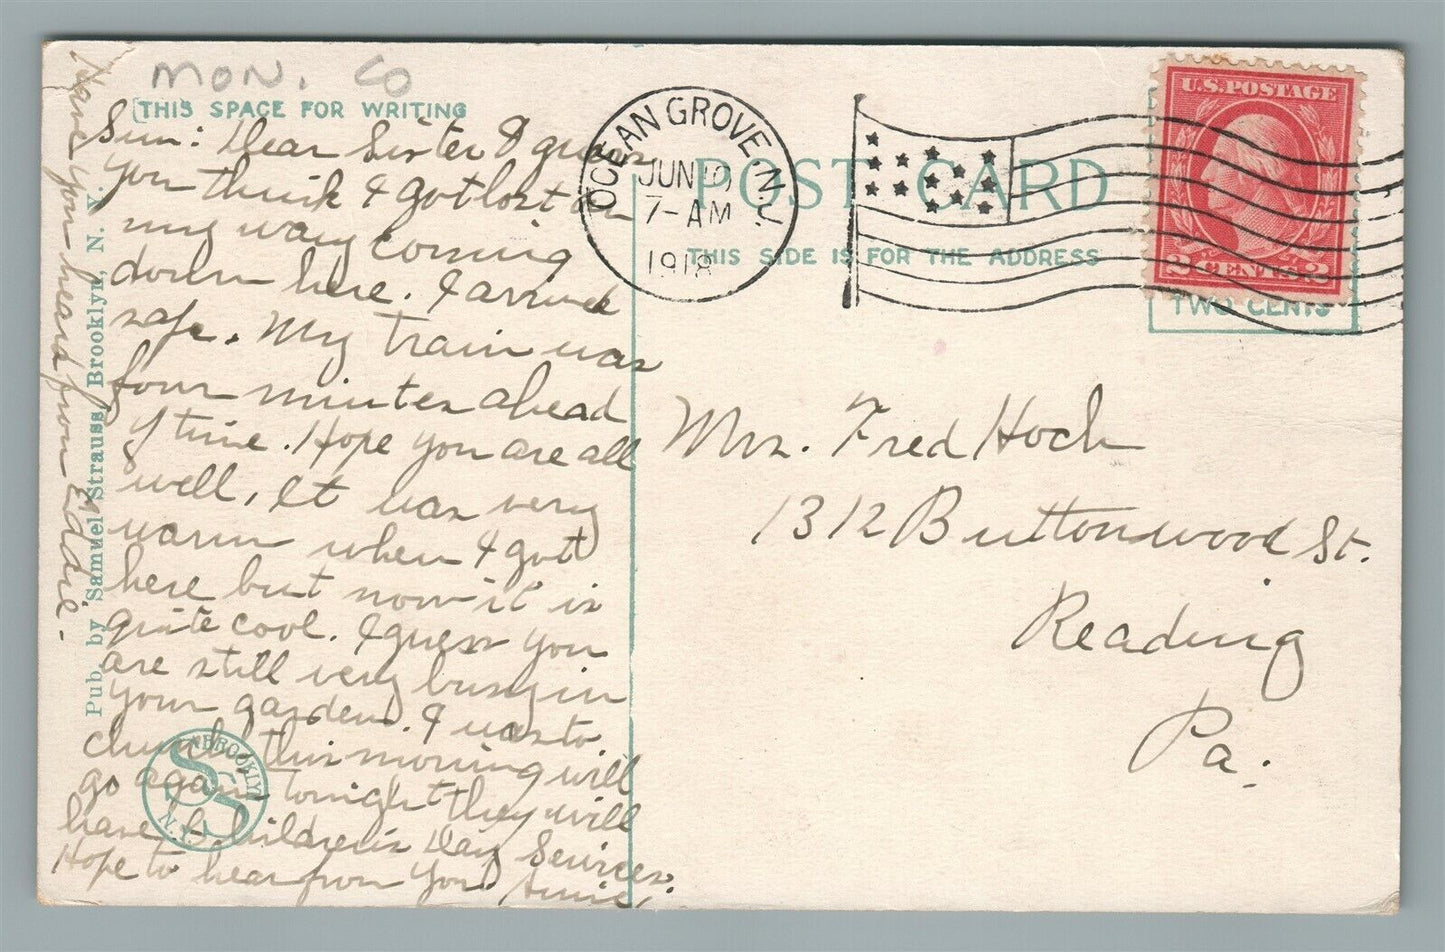 MON. CO
THIS SPACE FOR WRITING
Sun: Dear Sister I guess
you think I got lost on
my way coming
down here. I arrived
safe. My train was
four minutes ahead
of time. Hope you are all
well, It was very
warm when I got
here but now it is
quite cool. I guess you
are still very busy in
your garden. I was to
church this morning will
go again tonight they will
have Children's Day Services.
Hope to hear from you
Have you heard from Eddie.
Pub. by Samuel Strauss, Brooklyn, N. Y.
BROOKLYN
SS
N.Y.
OCEAN GROVE. N.J.
JUN 10
7-AM
1918
POST CARD
THIS SIDE IS FOR THE ADDRESS
U.S. POSTAGE
2 CENTS 2
TWO CENTS
Mrs. Fred Hoch
1312 Buttonwood St.
Reading
Pa.